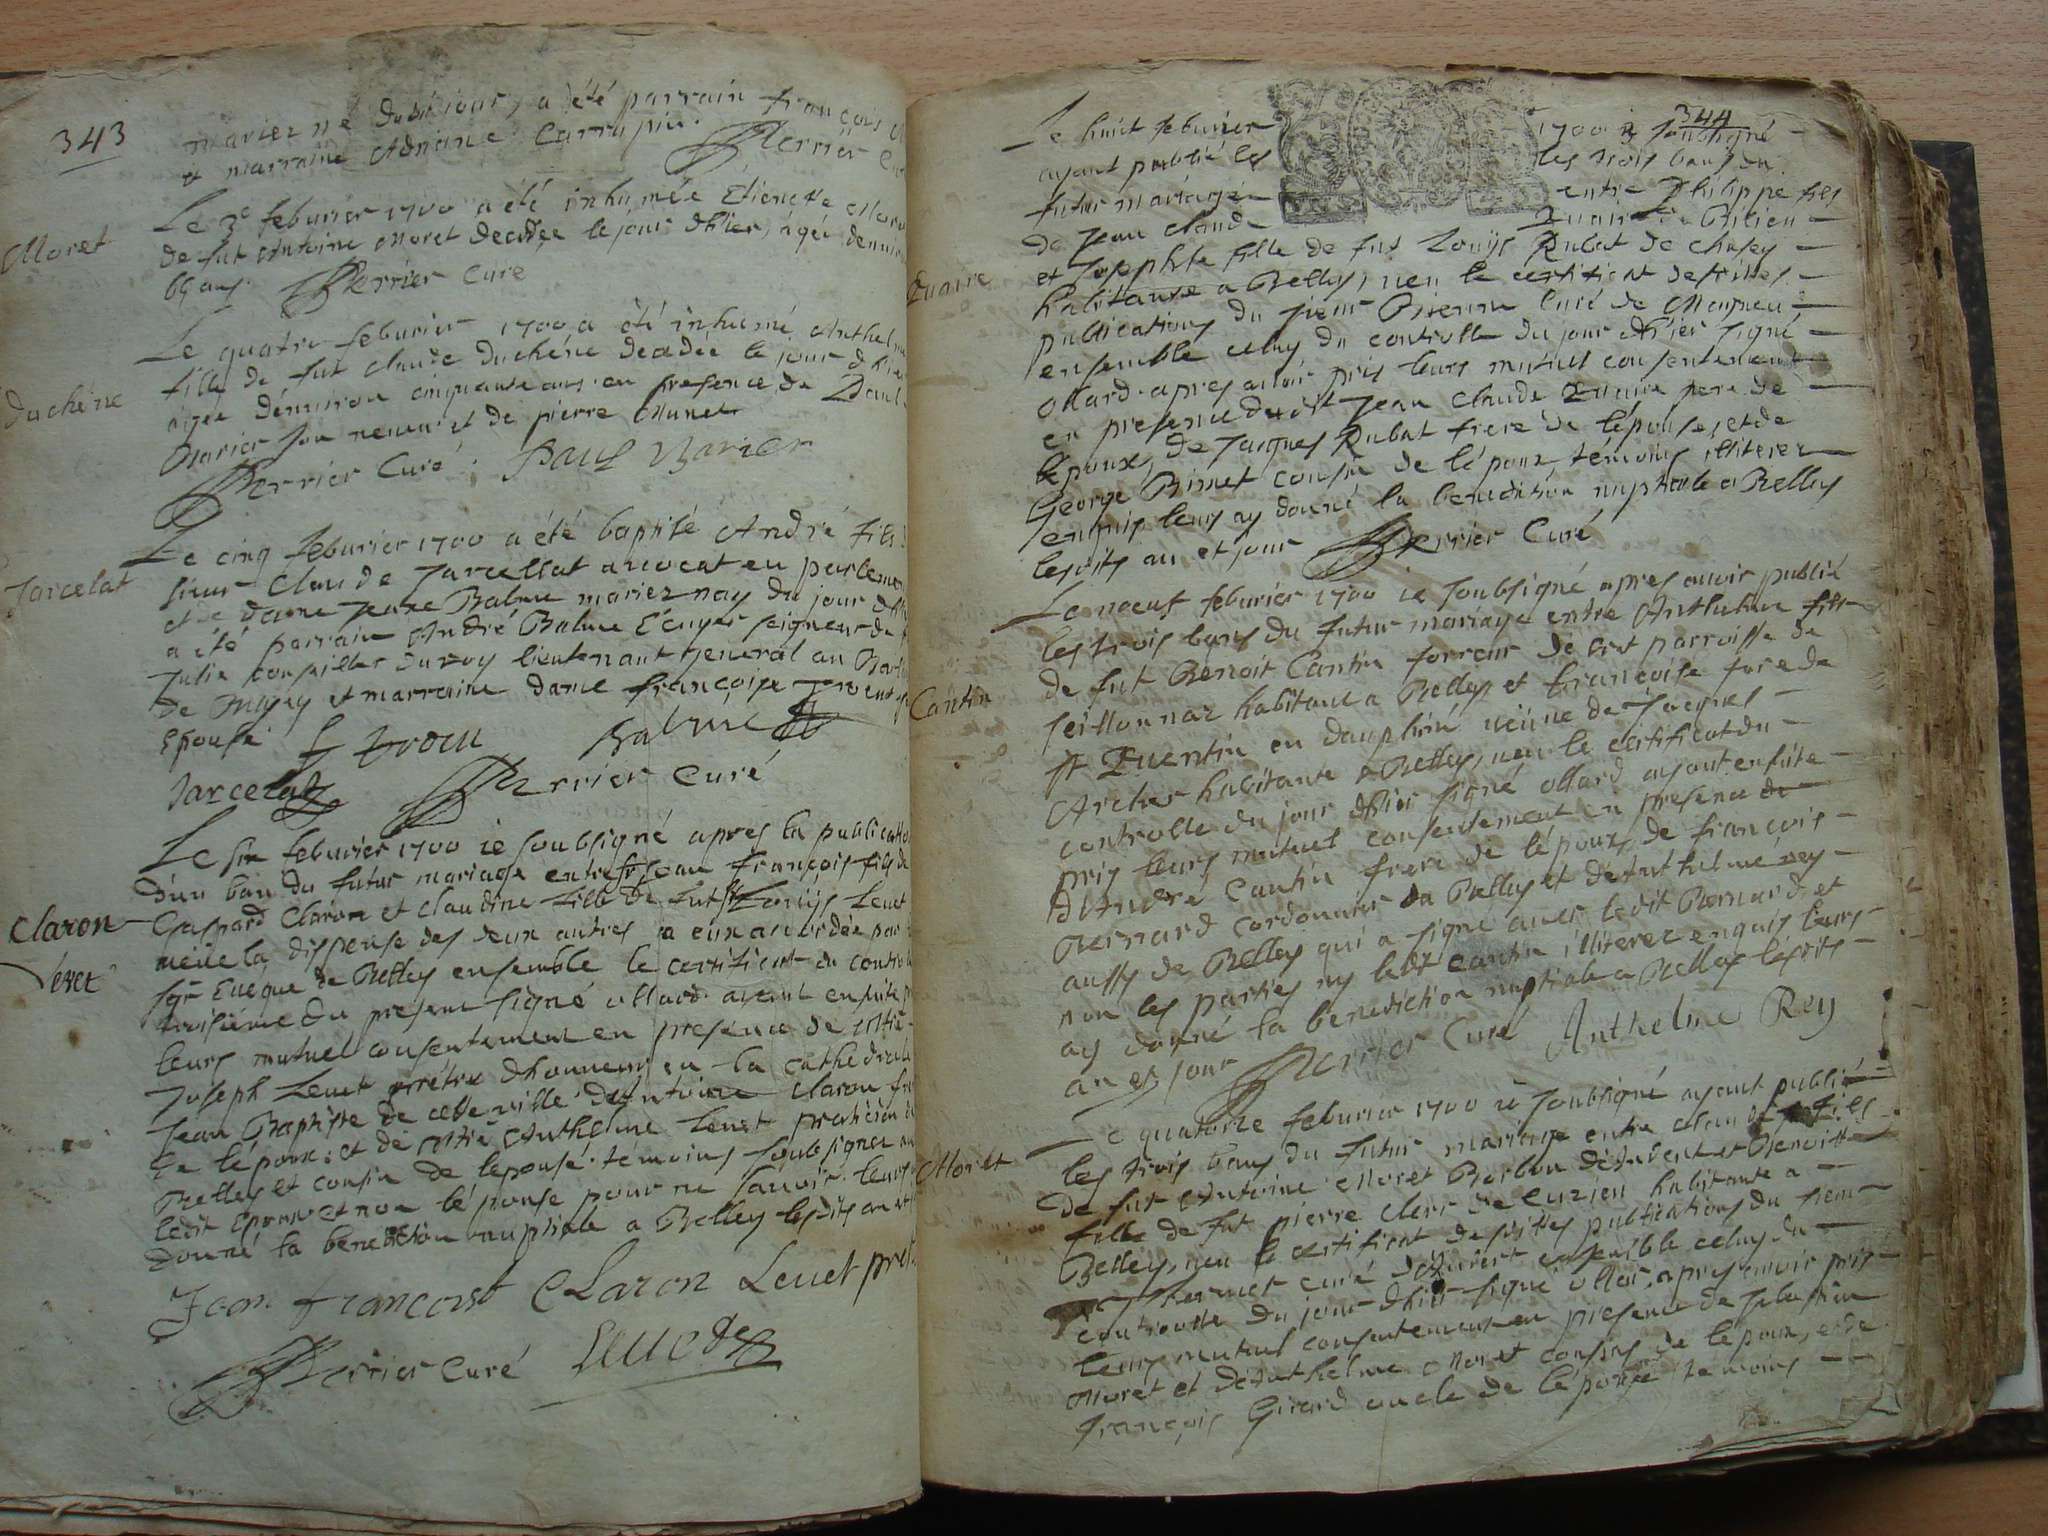 343
mariez né dudit jour, a été parrain françois
et marraine Adriane Carrapiu. Perrier Curé
Moret
Le 3e feburier 1700 a été inhumée Etienette Moret
de fut Antoine Moret decedée le jour d'hier, agée denviron
69 ans. Perrier Curé
Duchéne
Le quatre feburier 1700 a été inhumé Anthelme
fille de fut claude Duchéne decedée le jour d'hier
agée dénviron cinquante ans en presence de Paul
Marier son neveu et de pierre Munet
Perrier Curé. Paul Marier
Jarcelat
Le cinq feburier 1700 a été baptisé André fils
sieur Claude Jarcellat avocat en parlement
et de dame Jeane Balme mariez nay du jour d'hier
a été parrain André Balme Ecuyer seigneur de
Julie conseiller du roy lieutenant general au
de et marraine dame françoise
Epouse Balme
Jarcelat Perrier Curé
Claron
Levet
Le six feburier 1700 ie soubsigné apres la publication
d'un ban du futur mariage entre Sr Jean François fils de
Gaspard Claron et claudine fille de fut Sr Louijs Levet
veüe la dispense des deux autres a eux accordée par
sgr Eveque de Belley ensemble le certificat du controlle
troisiéme du present signé ollard ayant ensuite pris
leurs mutuel consentement en presence de
Joseph Levet prétre d'honneur en la cathedrale
Jean Baptiste de cette ville d'Antoine Claron frere
de lépoux: et de Anthelme Levet praticien de
Belley et cousin de lepouse temoins soubsignez avec
ledit Epoux et non lépouse pour ne savoir. leurs
donné la benediction nuptiale a Belley lesdits an et
Jean françois Claron Levet
Perrier Curé Levet
344
Le huict feburier 1700 ie soubsigné
ayant publié les les trois bans du
futur mariage entre Philippe fils
de Jean claude Quaire
et Josephte fille de fut Louijs Rubat de
habitante a Belley, veu le certificat desdittes
publications du sieur curé de
ensemble celuy du controlle du jour d'hier signé
Quaire
ollard. apres avoir pris leurs mutuel consentement
en presence dudit Jean claude Quaire pere de
lépoux, de Jaques Rubat frere de lépouse, et de
George Binet cousin de lépoux, témoins illiterez
enquis leurs ay donné la benediction nuptiale a Belley
lesdits an et jour Perrier Curé
Cantin
Le noeuf feburier 1700 ie soubsigné apres avoir publié
les trois bans du futur mariage entre Anthelme fils
de fut Benoit Cantin parroisse de
Seillonnaz habitant a Belley et françoise fare de
st Quentin en dauphiné veüve de Jacques
Archer habitante a Belley, veu le certificat du
controlle du jour d'hier signé ollard ayant ensuite
pris leurs mutuel consentement en presence de
d'André Cantin frere de lépoux, de françois
Bernard cordonnier de Belley et d'Anthelme rey
aussy de Belley qui a signé avec ledit Bernard et
non les parties ny ledt Cantin illiterez enquis leurs
ay donné la benediction nuptiale a Belley lesdits
an et jour Perrier Curé Anthelme Rey
Moret
Le quatorze feburier 1700 ie soubsigné ayant publié
les trois bans du futur mariage entre claude fils
de fut Antoine Moret et Benoitte
fille de fut pierre clerc de cuzieu habitante a
Belley, veu le certificat desdittes publications du sieur
Thermet curé ensemble celuy du
controlle du jour d'hier signé ollard, apres avoir pris
leurs mutuel consentement en presence de sebastien
Moret et d'Anthelme Moret cousins de lépoux, et de
françois Girard oncle de lépouse temoins